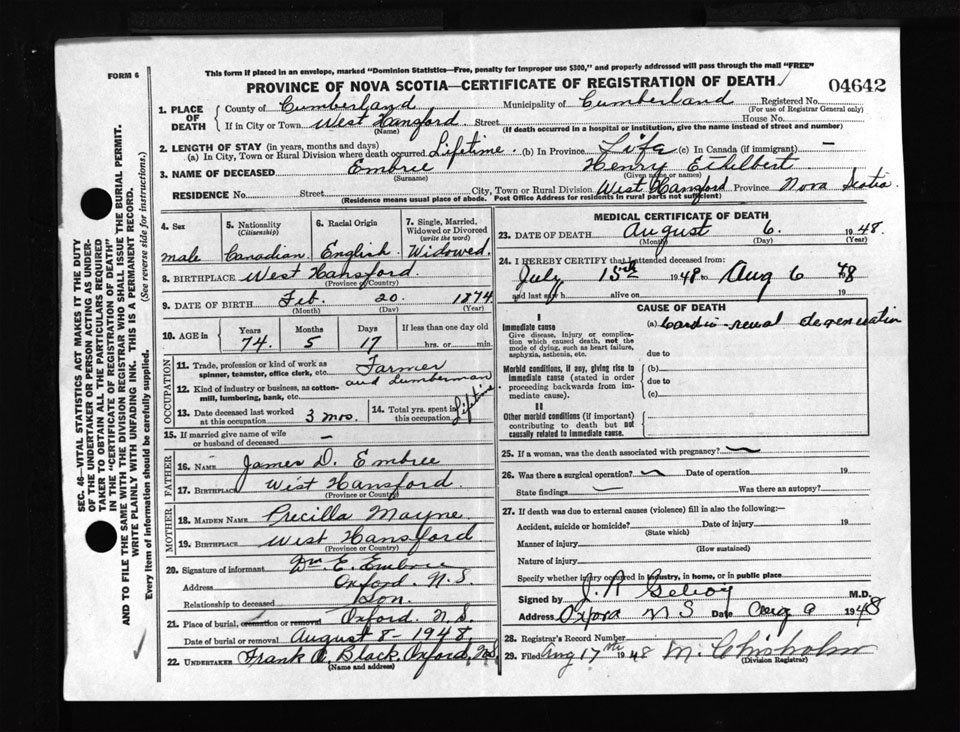 FORM 6
This form if placed in an envelope, marked "Dominion Statistics—Free, penalty for improper use $300," and properly addressed will pass through the mail "FREE"
PROVINCE OF NOVA SCOTIA—CERTIFICATE OF REGISTRATION OF DEATH
04642
1. PLACE OF DEATH
County of Cumberland Municipality of Cumberland Registered No.
(For use of Registrar General only)
If in City or Town West Hansford Street House No.
(Name) (If death occurred in a hospital or institution, give the name instead of street and number)
2. LENGTH OF STAY (in years, months and days)
(a) In City, Town or Rural Division where death occurred Lifetime. (b) In Province Life (c) In Canada (if immigrant) —
3. NAME OF DECEASED Embree Henry Ethelbert
(Surname) (Given name or names)
RESIDENCE No. Street City, Town or Rural Division West Hansford Province Nova Scotia.
(Residence means usual place of abode. Post Office Address for residents in rural parts not sufficient)
4. Sex 5. Nationality (Citizenship) 6. Racial Origin 7. Single, Married, Widowed or Divorced (write the word)
male Canadian English Widowed.
8. BIRTHPLACE West Hansford.
(Province or Country)
9. DATE OF BIRTH Feb. 20. 1874
(Month) (Day) (Year)
10. AGE in Years Months Days If less than one day old
74. 5 17 hrs. or min.
OCCUPATION
11. Trade, profession or kind of work as spinner, teamster, office clerk, etc. Farmer
and Lumberman
12. Kind of industry or business, as cotton-mill, lumbering, bank, etc.
13. Date deceased last worked at this occupation 3 mos. 14. Total yrs. spent in this occupation Lifetime
15. If married give name of wife or husband of deceased —
FATHER
16. NAME James D. Embree
17. BIRTHPLACE West Hansford.
(Province or Country)
MOTHER
18. MAIDEN NAME Precilla Mayne
19. BIRTHPLACE West Hansford
(Province or Country)
20. Signature of informant Wm E. Embree
Address Oxford N.S.
Relationship to deceased Son.
21. Place of burial, cremation or removal Oxford. N.S.
Date of burial or removal August 8-1948
22. UNDERTAKER Frank Black, Oxford, N.S.
(Name and address)
MEDICAL CERTIFICATE OF DEATH
23. DATE OF DEATH August 6. 1948.
(Month) (Day) (Year)
24. I HEREBY CERTIFY that I attended deceased from:
July 15th 1948 to Aug 6 1948
and last saw h alive on 19
CAUSE OF DEATH
I
Immediate cause (a) Cardio-renal degeneration
Give disease, injury or complication which caused death, not the mode of dying, such as heart failure, asphyxia, asthenia, etc.
due to
Morbid conditions, if any, giving rise to immediate cause (stated in order proceeding backwards from immediate cause).
(b)
due to
(c)
II
Other morbid conditions (if important) contributing to death but not causally related to immediate cause.
25. If a woman, was the death associated with pregnancy?
26. Was there a surgical operation? Date of operation 19
State findings — Was there an autopsy?
27. If death was due to external causes (violence) fill in also the following:—
Accident, suicide or homicide? Date of injury 19
(State which)
Manner of injury
(How sustained)
Nature of injury
Specify whether injury occurred in industry, in home, or in public place
Signed by M.D.
Address Oxford N S Date Aug 9 1948
28. Registrar's Record Number
29. Filed Aug 17th 1948 M. Chisholm
(Division Registrar)
SEC. 46—VITAL STATISTICS ACT MAKES IT THE DUTY
OF THE UNDERTAKER OR PERSON ACTING AS UNDER-
TAKER TO OBTAIN ALL THE PARTICULARS REQUIRED
IN THE "CERTIFICATE OF REGISTRATION OF DEATH"
AND TO FILE THE SAME WITH THE DIVISION REGISTRAR WHO SHALL ISSUE THE BURIAL PERMIT.
WRITE PLAINLY WITH UNFADING INK. THIS IS A PERMANENT RECORD.
Every item of information should be carefully supplied. (See reverse side for instructions.)